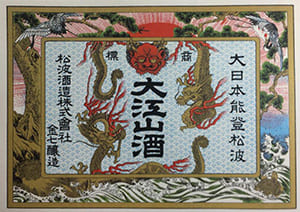 大日本能登松波
商標
大江山酒
松波酒造株式會社
金七醸造